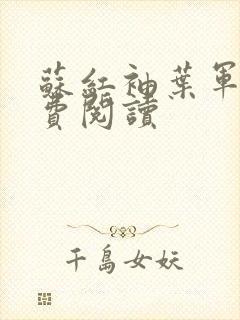 蘇紅袖葉軍
費閱讀
千島女妖